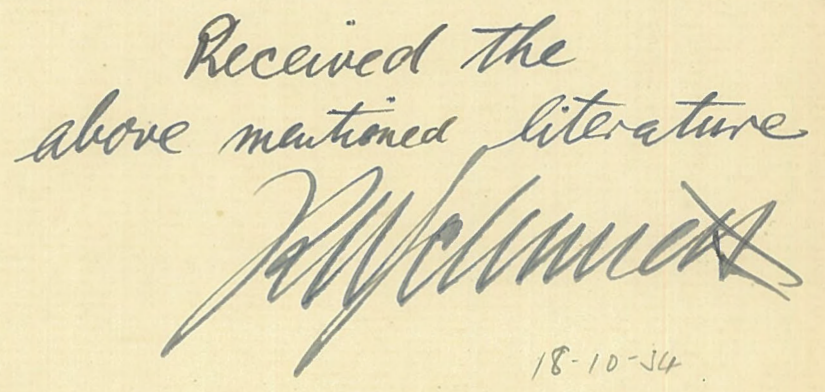 Received the
above mentioned literature
18-10-34